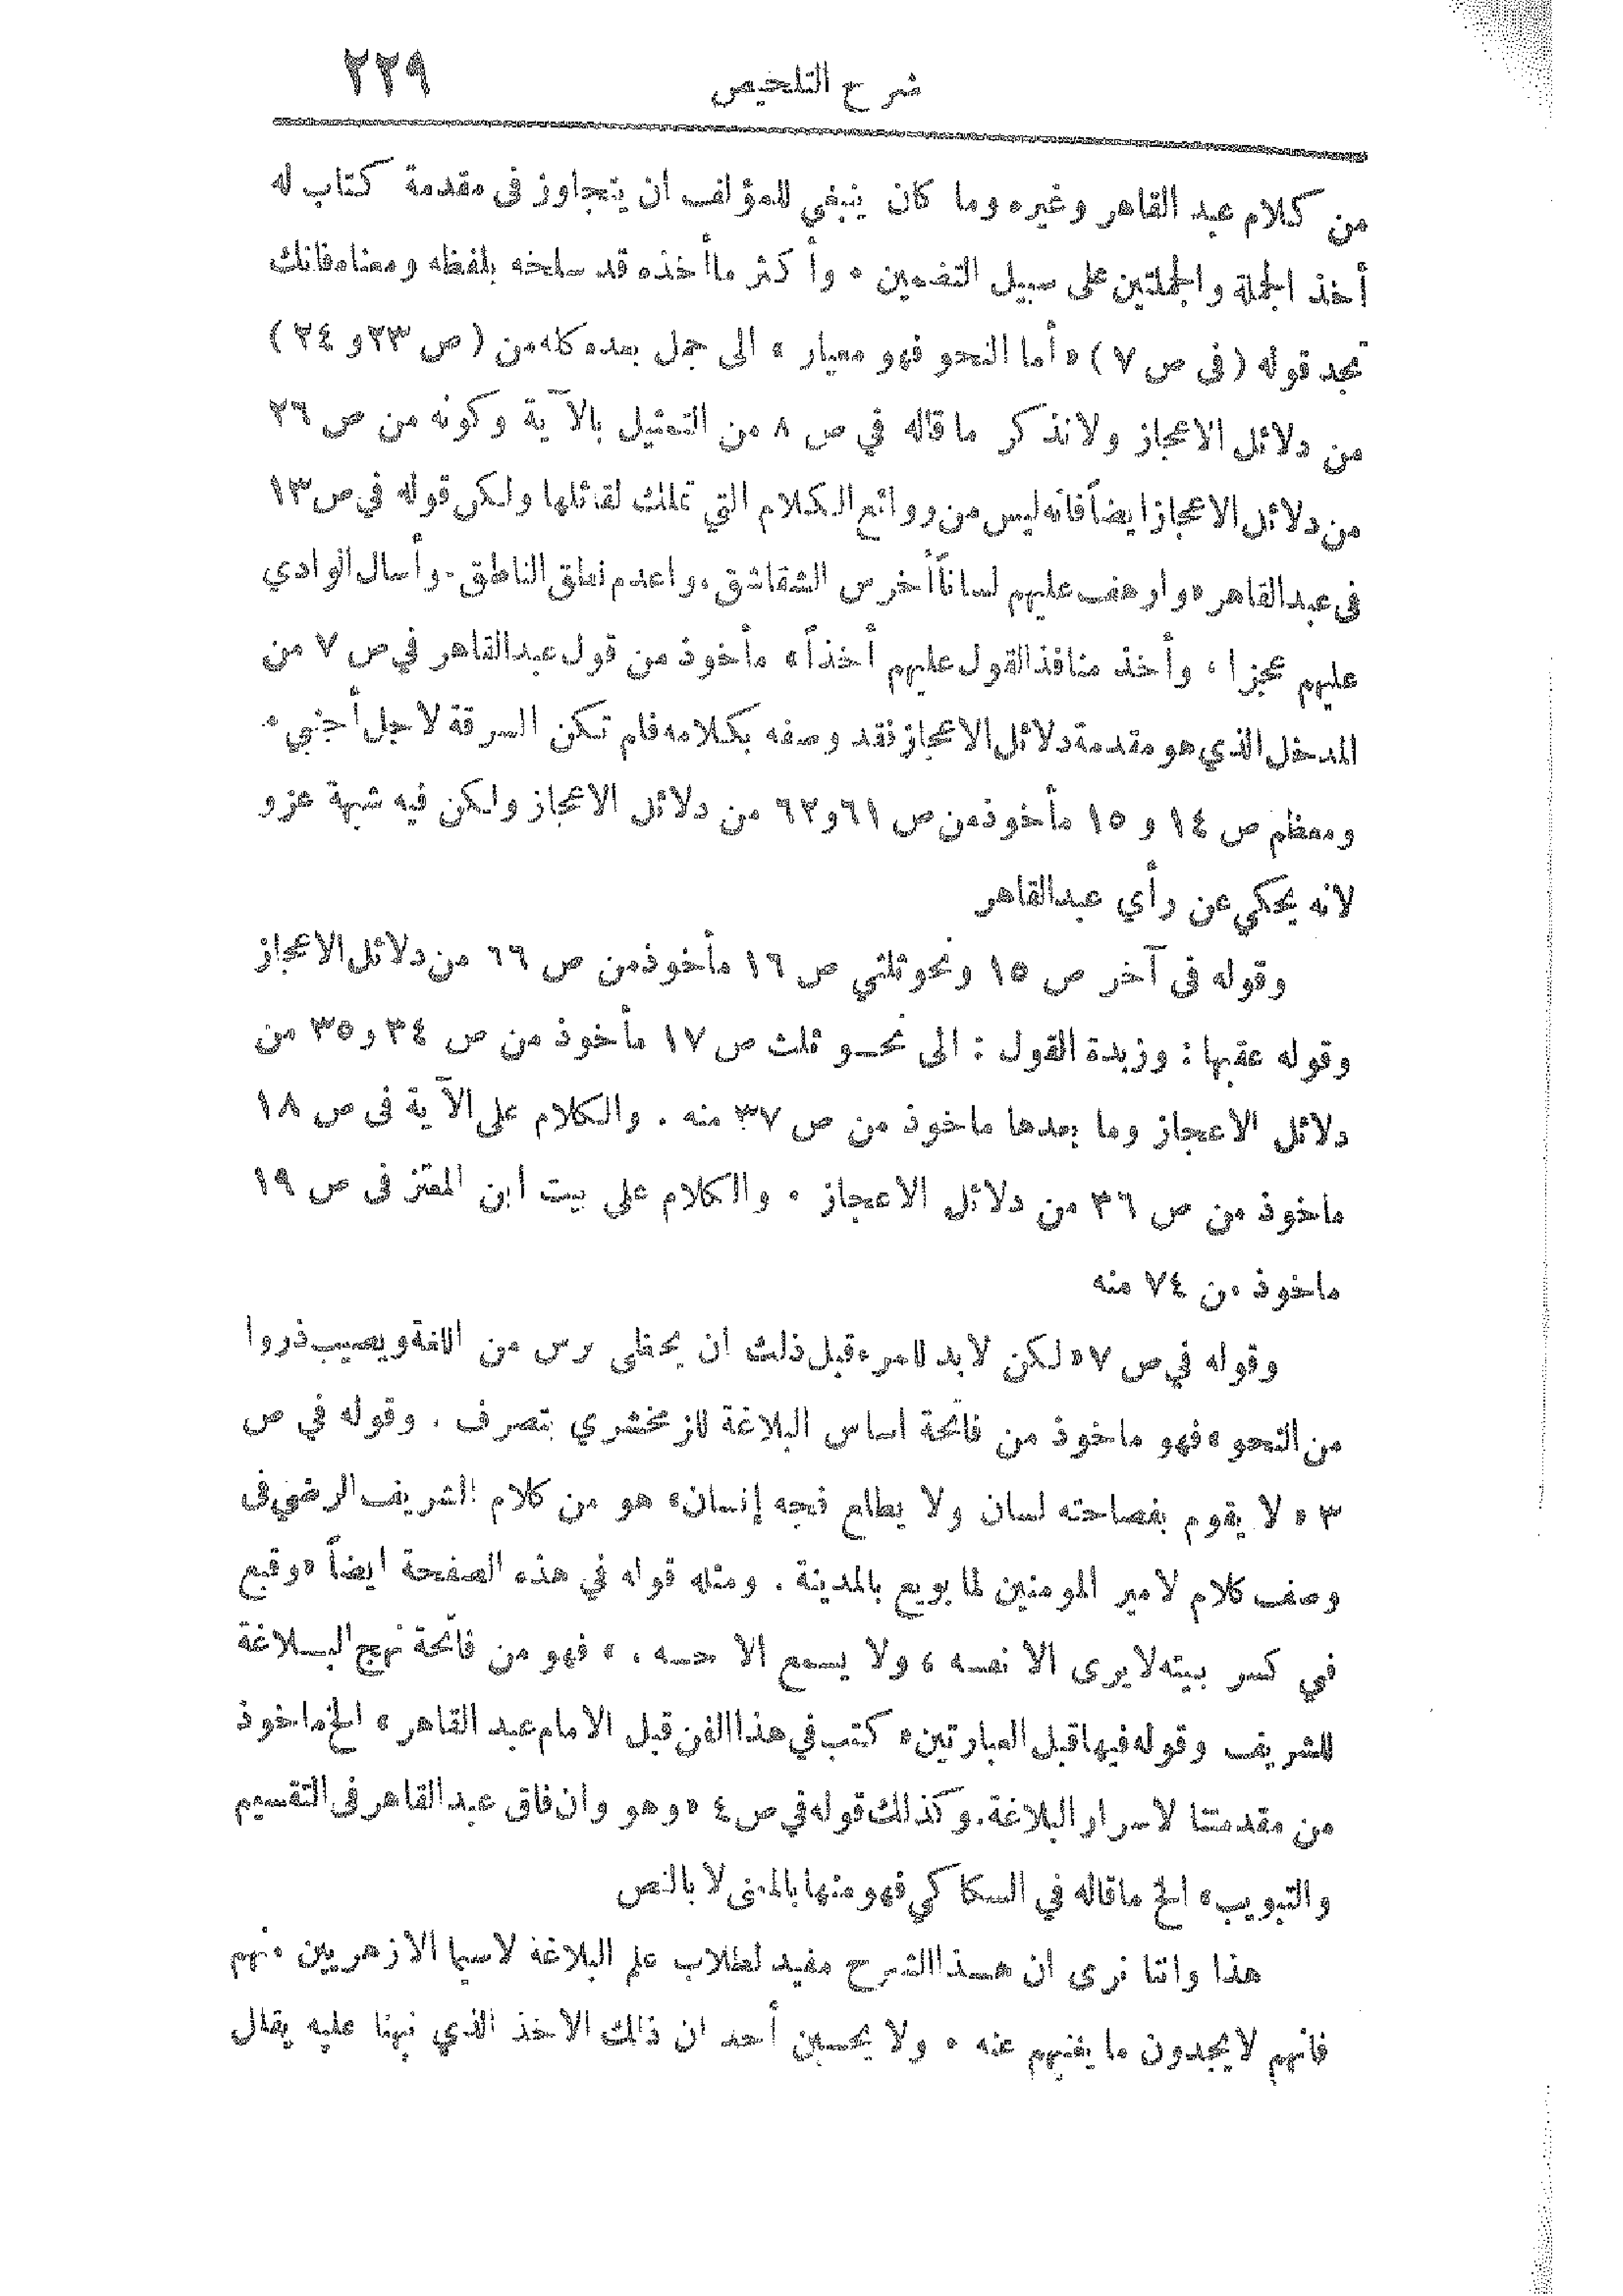 شرح التلخيص ٢٢٩
من كلام عبد القاهر وغيره وما كان ينبغي للمؤلف أن يتجاوز فى مقدمة كتاب له
أخذ الجملة والجملتين على سبيل التضمين • وأكثر ماأخذه قد سلخه بلفظه ومعناه فانك
تجد قوله (فى ص ٧) «أما النحو فهو معيار» الى جمل بعده كله من (ص ٢٣ و ٢٤)
من دلائل الاعجاز ولا نذكر ما قاله في ص ٨ من التمثيل بالآية وكونه من ص ٢٦
من دلائل الاعجاز ايضاً فانه ليس من روائع الكلام التي تملك لقائلها ولكن قوله في ص ١٣
فى عبد القاهر «وارهف عليهم لساناً أخرس الشقاشق، واعدم نطق الناطق. وأسال الوادي
عليهم عجزا، وأخذ منافذ القول عليهم أخذاً» مأخوذ من قول عبد القاهر في ص ٧ من
المدخل الذي هو مقدمة دلائل الاعجاز فقد وصفه بكلامه فلم تكن السرقة لاجل أجنبي •
ومعظم ص ١٤ و ١٥ مأخوذ من ص ٦١ و ٦٢ من دلائل الاعجاز ولكن فيه شبهة عزو
لانه يحكي عن رأي عبد القاهر
وقوله فى آخر ص ١٥ ونحو ثلثي ص ١٦ مأخوذ من ص ٦٦ من دلائل الاعجاز
وقوله عقبها : وزبدة القول : الى نحو ثلث ص ١٧ مأخوذ من ص ٣٤ و ٣٥ من
دلائل الاعجاز وما بعدها ماخوذ من ص ٣٧ منه . والكلام على الآية فى ص ١٨
ماخوذ من ص ٣٦ من دلائل الاعجاز • والكلام على بيت ابن المعتز فى ص ١٩
ماخوذ من ٧٤ منه
وقوله في ص ٧ «لكن لا بد للمرء قبل ذلك ان يحظى برس من اللغة ويصيب ذروا
من النحو» فهو ماخوذ من فاتحة اساس البلاغة للزمخشري بتصرف . وقوله في ص
٣ «لا يقوم بفصاحته لسان ولا يطلع فجه إنسان» هو من كلام الشريف الرضي فى
وصف كلام لامير المومنين لما بويع بالمدينة . ومثله قوله في هذه الصفحة ايضاً «وقبع
في كسر بيته لا يرى الا نفسه، ولا يسمع الا حسه .» فهو من فاتحة نهج البلاغة
للشريف وقوله فيها قبل العبارتين «كتب في هذا الفن قبل الامام عبد القاهر» الخ ماخوذ
من مقدمتنا لاسرار البلاغة. وكذلك قوله في ص ٤ «وهو وان فاق عبد القاهر فى التقسيم
والتبويب» الخ ما قاله في السكاكي فهو منها بالمعنى لا بالنص
هذا واننا نرى ان هذا الشرح مفيد لطلاب علم البلاغة لاسيما الازهريين منهم
فانهم لا يجدون ما يغنيهم عنه • ولا يحسبن أحد ان ذلك الاخذ الذي نبهنا عليه يقال